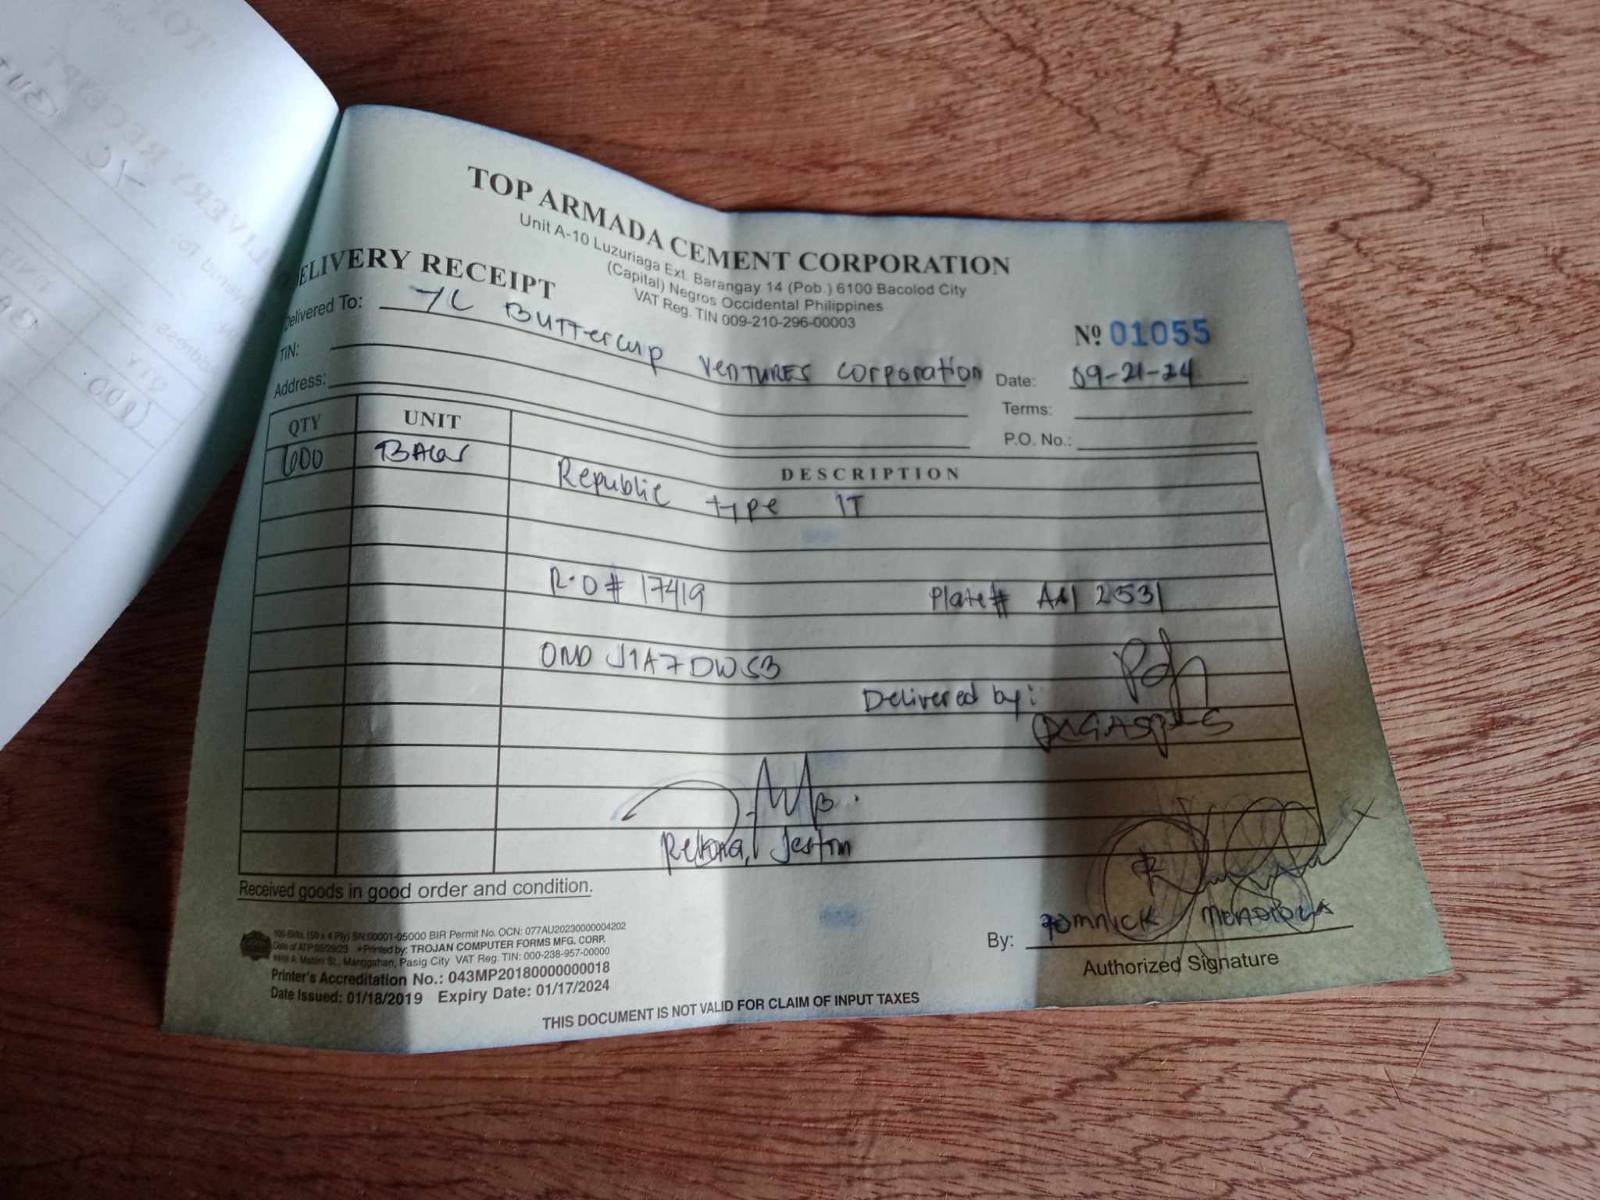 TOP ARMADA CEMENT CORPORATION
Unit A-10 Luzuriaga Ext. Barangay 14 (Pob.) 6100 Bacolod City
(Capital) Negros Occidental Philippines
VAT Reg. TIN 009-210-296-00003
DELIVERY RECEIPT
Nº 01055
Delivered To: YL Buttercup VENTURES corporation
Date: 09-21-24
TIN:
Terms:
Address:
P.O. No.:
QTY UNIT DESCRIPTION
600 BAGS Republic type 1T
R.O# 17419 Plate# AAI 2531
OND J1A7DWS3
Delivered by:
Received goods in good order and condition.
By: ROMNICK
Authorized Signature
100 Bklts. (50 x 4 Ply) SN:00001-05000 BIR Permit No. OCN: 077AU20230000004202
Date of ATP Printed by: TROJAN COMPUTER FORMS MFG. CORP.
Manggahan, Pasig City VAT Reg. TIN: 000-238-957-00000
Printer's Accreditation No.: 043MP20180000000018
Date Issued: 01/18/2019 Expiry Date: 01/17/2024
THIS DOCUMENT IS NOT VALID FOR CLAIM OF INPUT TAXES